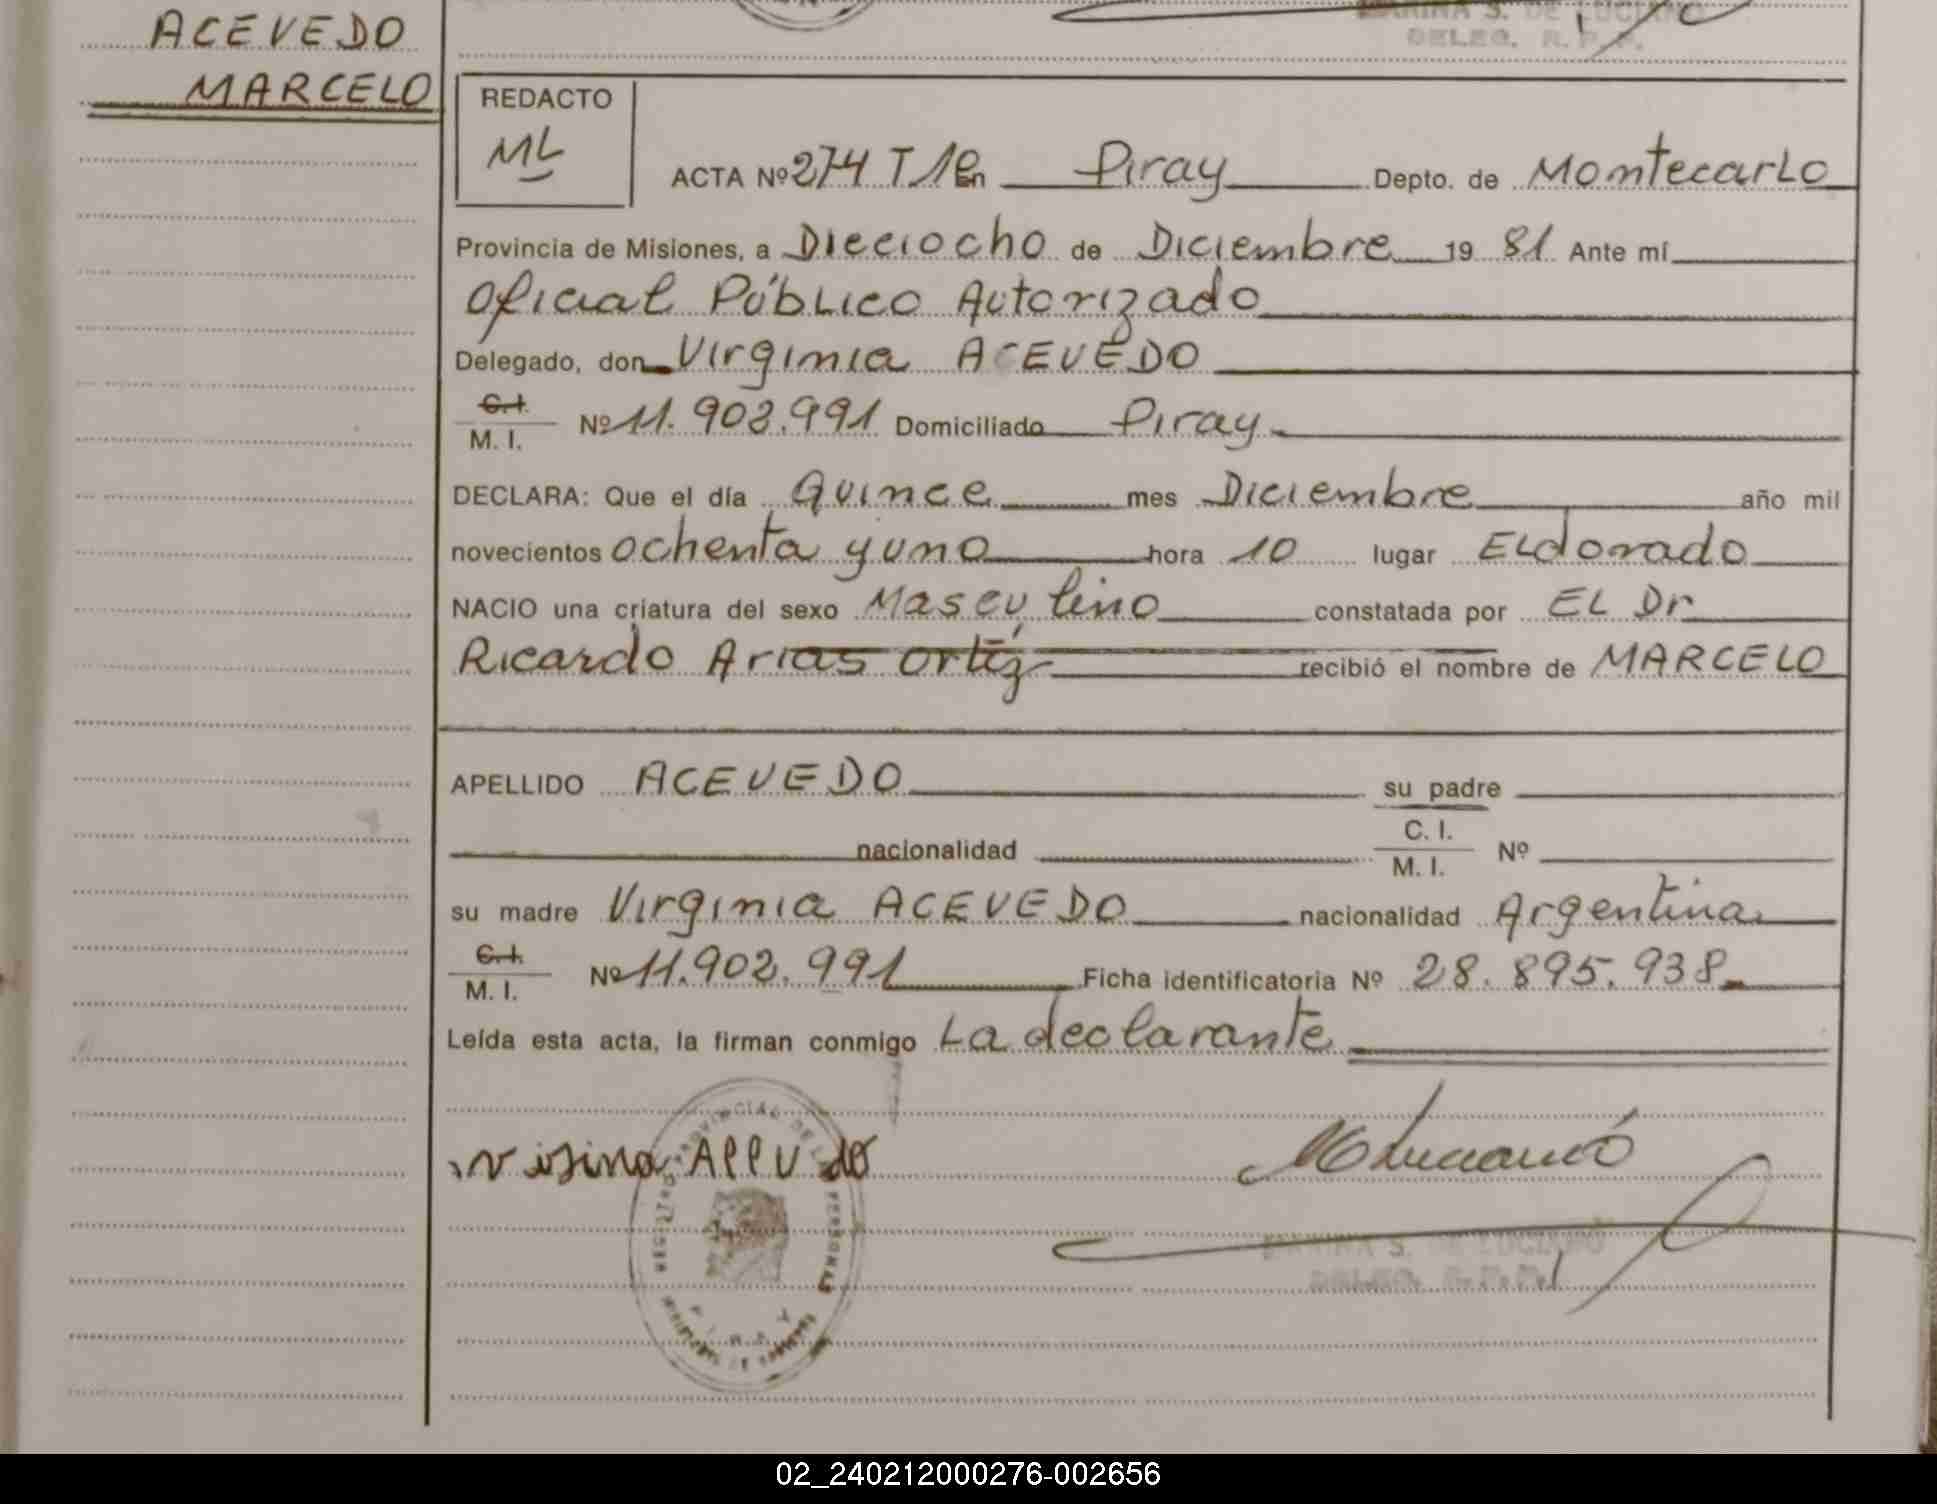 ACEVEDO
MARCELO
MARINA S. DE LUCIANO
DELEG. R. P. P.
REDACTO
ML
ACTA Nº 274 T 1º En Piray Depto. de Montecarlo
Provincia de Misiones, a Dieciocho de Diciembre 19 81 Ante mí
Oficial Público Autorizado
Delegado, don Virginia ACEVEDO
C.I.
M. I. Nº 11.902.991 Domiciliado Piray
DECLARA: Que el día Quince mes Diciembre año mil
novecientos ochenta y uno hora 10 lugar ELdorado
NACIO una criatura del sexo Masculino constatada por EL Dr
Ricardo Arias Ortíz recibió el nombre de MARCELO
APELLIDO ACEVEDO su padre
nacionalidad C. I.
M. I. Nº
su madre Virginia ACEVEDO nacionalidad Argentina
C.I.
M. I. Nº 11.902.991 Ficha identificatoria Nº 28.895.938
Leída esta acta, la firman conmigo La declarante
REGISTRO PROVINCIAL DE LAS PERSONAS
PIRAY
MARINA S. DE LUCIANO
DELEG. R. P. P.
02_240212000276-002656